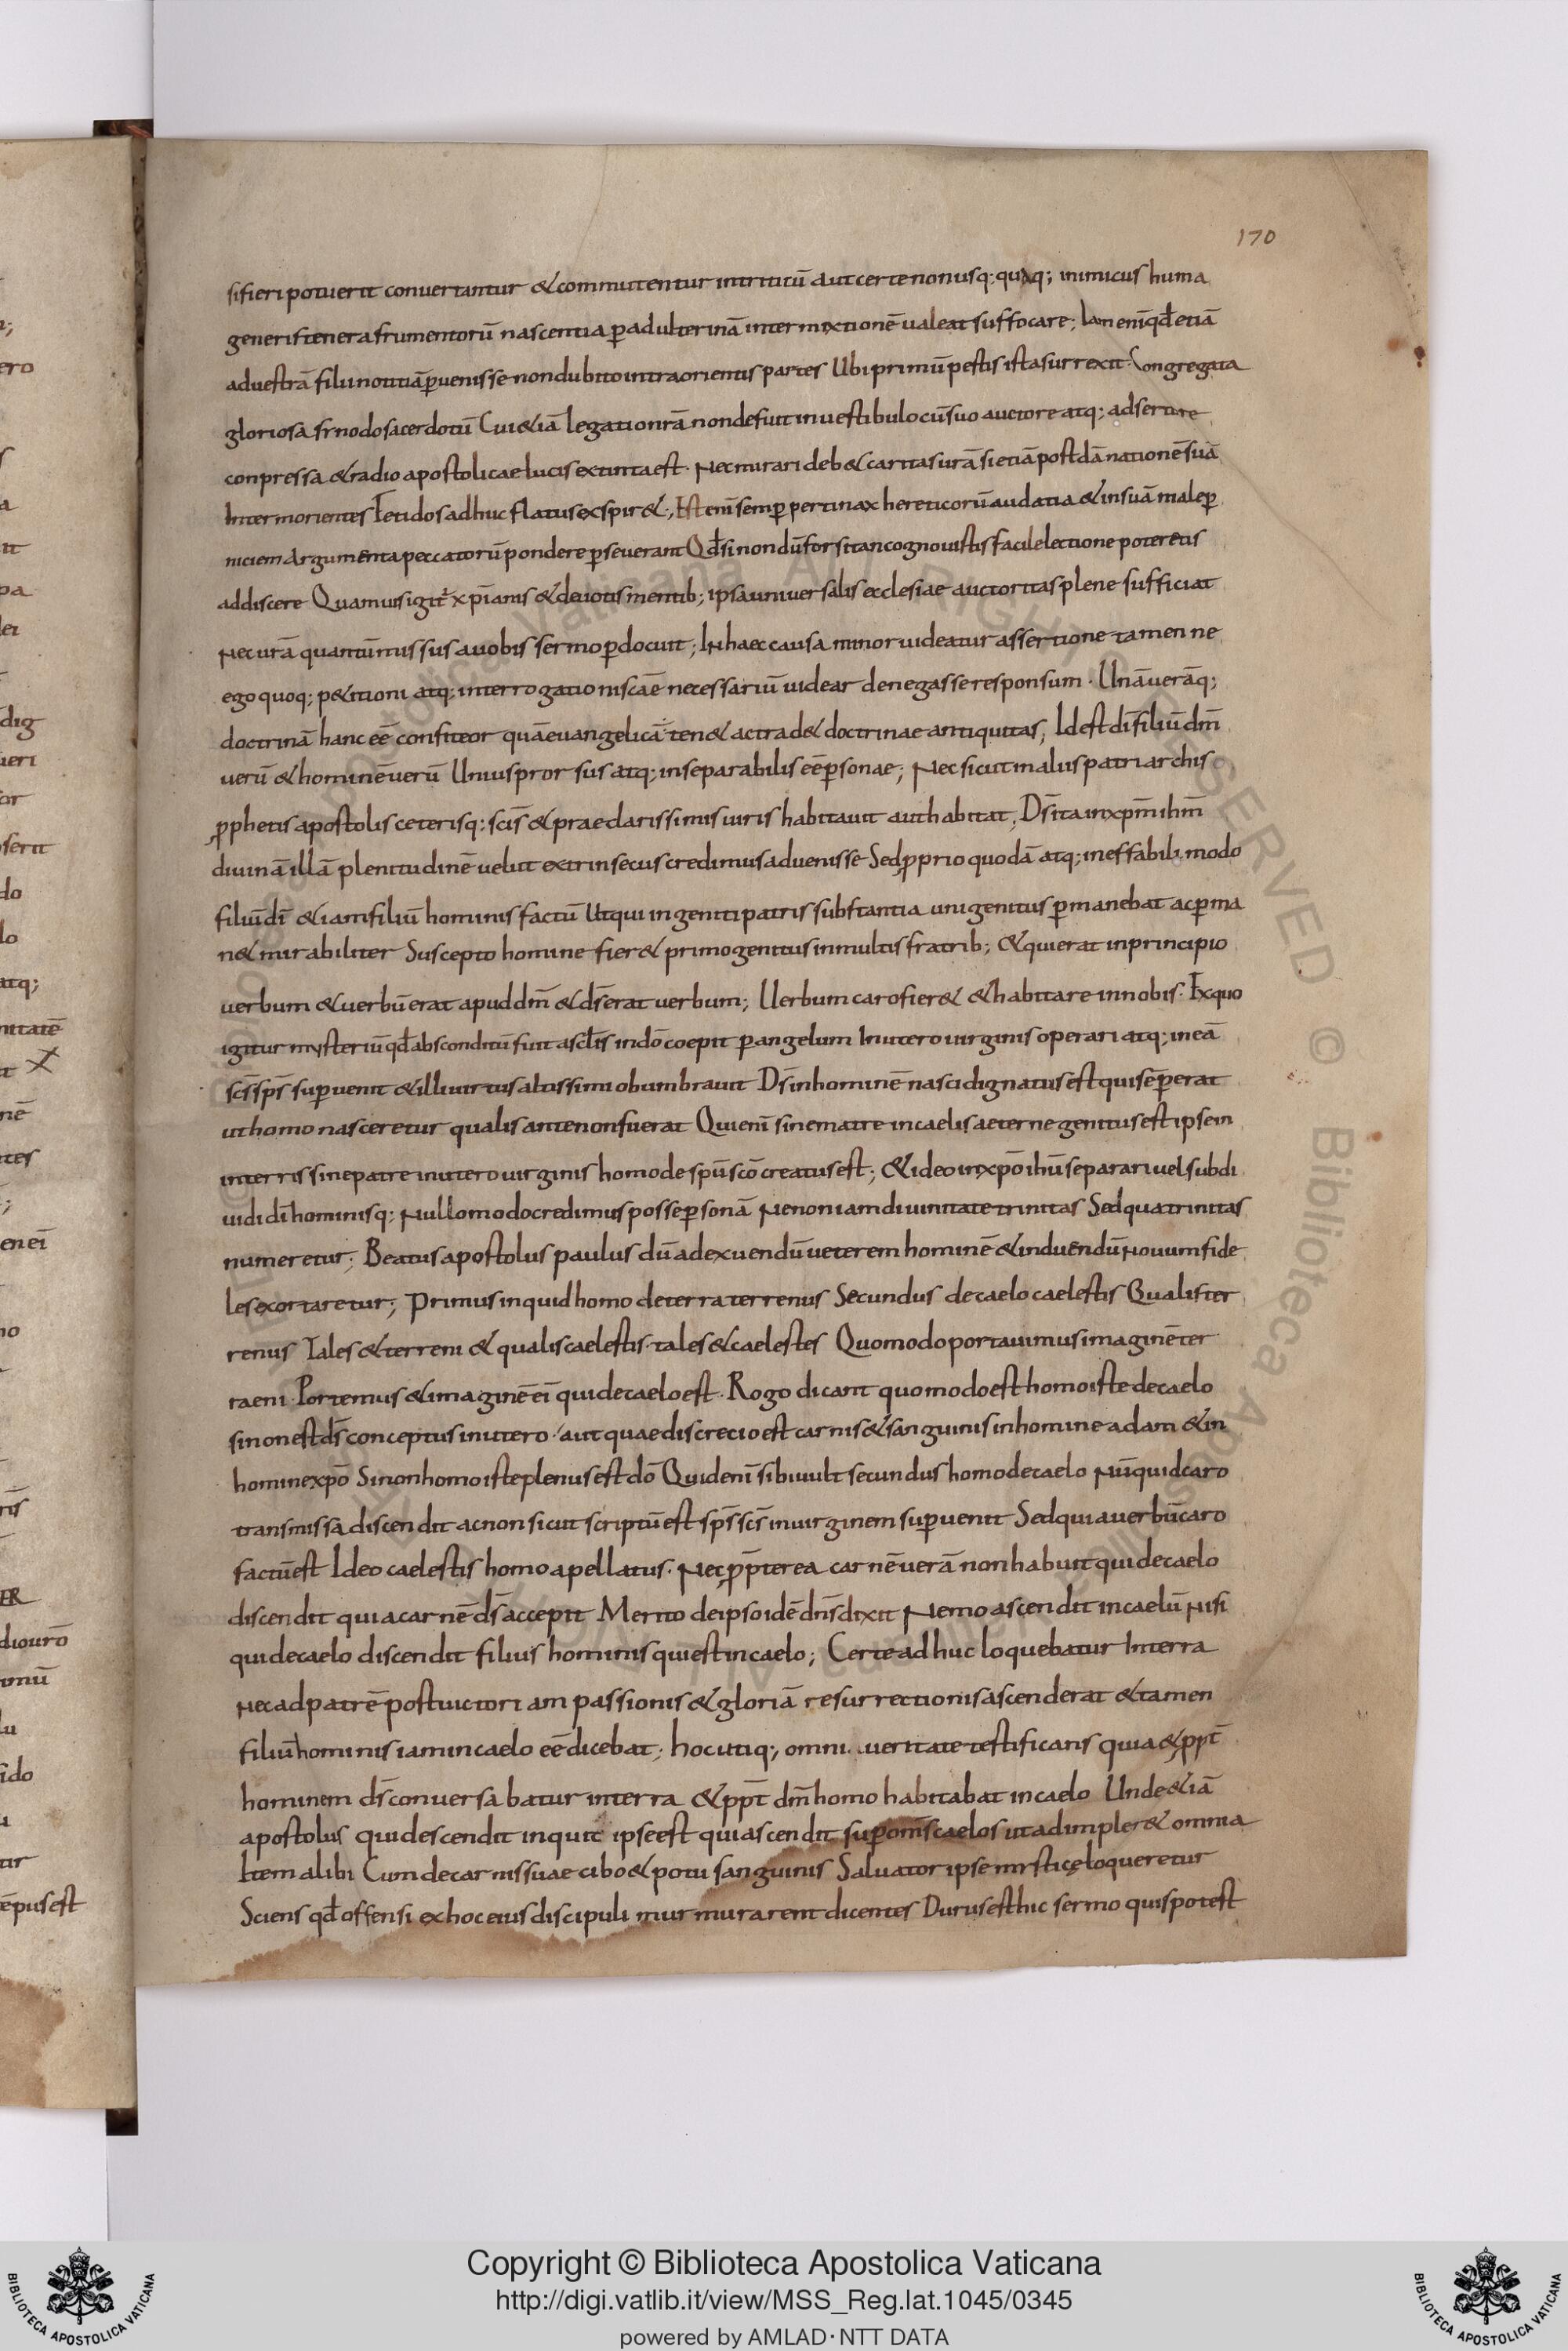 170
si fieri potuerit convertantur & commutentur intriticū aut certe non usq; quaq; inimicus huma
generis tenera frumentorū nascentia p adulterinā intermixtionē ualeat suffocare; Iam enī qđ etiā
ad uestrā filii notitiā puenisse non dubito intra orientis partes Ubi primū pestis ista surrexit Congregata
gloriosa synodo sacerdotū Cui &iā legatio nrā non defuit in uestibulo cū suo auctore atq; adsertore
conpressa & radio apostolicae lucis extincta est. Nec mirari deb& caritas urā si etiā post dānationē suā
Inter morientes Fetidos adhuc flatus exspir&; Est enī semp pertinax hereticorū audatia & in suā malep
niciem Argumēta peccatorū pondere pseuerant Qđ si nondū forsitan cognouistis facile lectione poteretis
addiscere Quamuis igit xpīanis & deuotis mentib; ipsa uniuersalis ecclesiae auctoritas plene sufficiat
Nec urā quantū missus a uobis sermo pdocuit; In haec causa minor uideatur assertione tamen ne
ego quoq; p&itioni atq; interrogationis cāe necessariū uidear denegasse responsum. Unā uerāq;
doctrinā hanc eē confiteor quā euangelicā ten& ac trad& doctrinae antiquitas, Id est dī filiū dm̄
uerū & hominē uerū Unius prorsus atq; inseparabilis eē psonae; Nec sicut in aliis patriarchis
pphetis apostolis ceterisq; scīs & praeclarissimis uiris habitauit aut habitat, Ds̄ ita in xpm̄ ihm̄
diuinā illā plenitudinē uelut extrinsecus credimus aduenisse Sed pprio quodā atq; ineffabili modo
filiū dī & iam filiū hominis factū Ut qui ingeniti patris substantia unigenitus pmanebat ac pma
n& mirabiliter Suscepto homine fier& primogenitus in multis fratrib; & qui erat in principio
uerbum & uerbū erat apud dm̄ & ds̄ erat uerbum; Uerbum caro fier& & habitare in nobis. Ex quo
igitur mysteriū qđ absconditū fuit a sclīs in dō coepit p angelum In utero uirginis operari atq; in eā
scs̄ sps̄ supuenit & illi uirtus altissimi obumbrauit Ds̄ in hominē nasci dignatus est qui sēp erat
ut homo nasceretur qualis ante non fuerat Qui enī sine matre in caelis aeterne genitus est ipse in
in terris sine patre in utero uirginis homo de spū scō creatus est; & ideo in xpō ihū separari uel subdi
uidi dī hominisq; Nullo modo credimus posse psonā Ne non iam diuinitate trinitas Sed quatrinitas
numeretur; Beatus apostolus paulus dū ad exuendū ueterem hominē & induēndū Nouum fide
les exortaretur; Primus inquid homo de terra terrenus Secundus de caelo caelestis Qualis ter
renus Tales & terreni & qualis caelestis tales & caelestes Quomodo portauimus imaginē ter
raeni Portemus & imaginē eī qui de caelo est. Rogo dicant quomodo est homo iste de caelo
si non est ds̄ conceptus in utero. aut quae discrecio est carnis & sanguinis in homine adam & in
homine xpō Si non homo iste plenus est dō Quid enī sibi uult secundus homo de caelo Nūquid caro
transmissa discendit ac non sicut scriptū est sps̄ scs̄ in uirginem supuenit Sed quia uerbū caro
factū est Ideo caelestis homo apellatus. Nec ppterea carnē uerā non habuit qui de caelo
discendit quia carnē ds̄ accepit Merito de ipso idē dns̄ dixit Nemo ascendit in caelū Nisi
qui de caelo discendit filius hominis qui est in caelo; Certe adhuc loquebatur In terra
Nec ad patrē post uictoriam passionis & gloriā resurrectionis ascenderat & tamen
filiū hominis iam in caelo eē dicebat; hoc utiq; omni ueritate testificans quia & ppt̄
hominem ds̄ conuersabatur in terra & ppt̄ dm̄ homo habitabat in caelo Unde &iā
apostolus qui descendit inquit ipse est qui ascendit sup omīs caelos ut adimpler& omnia
Item alibi Cum de carnis suae cibo & potu sanguinis Saluator ipse mysticę loqueretur
Sciens qđ offensi ex hoc eius discipuli murmurarent dicentes Durus est hic sermo quis potest
Copyright © Biblioteca Apostolica Vaticana
http://digi.vatlib.it/view/MSS_Reg.lat.1045/0345
powered by AMLAD·NTT DATA
BIBLIOTECA APOSTOLICA VATICANA
BIBLIOTECA APOSTOLICA VATICANA